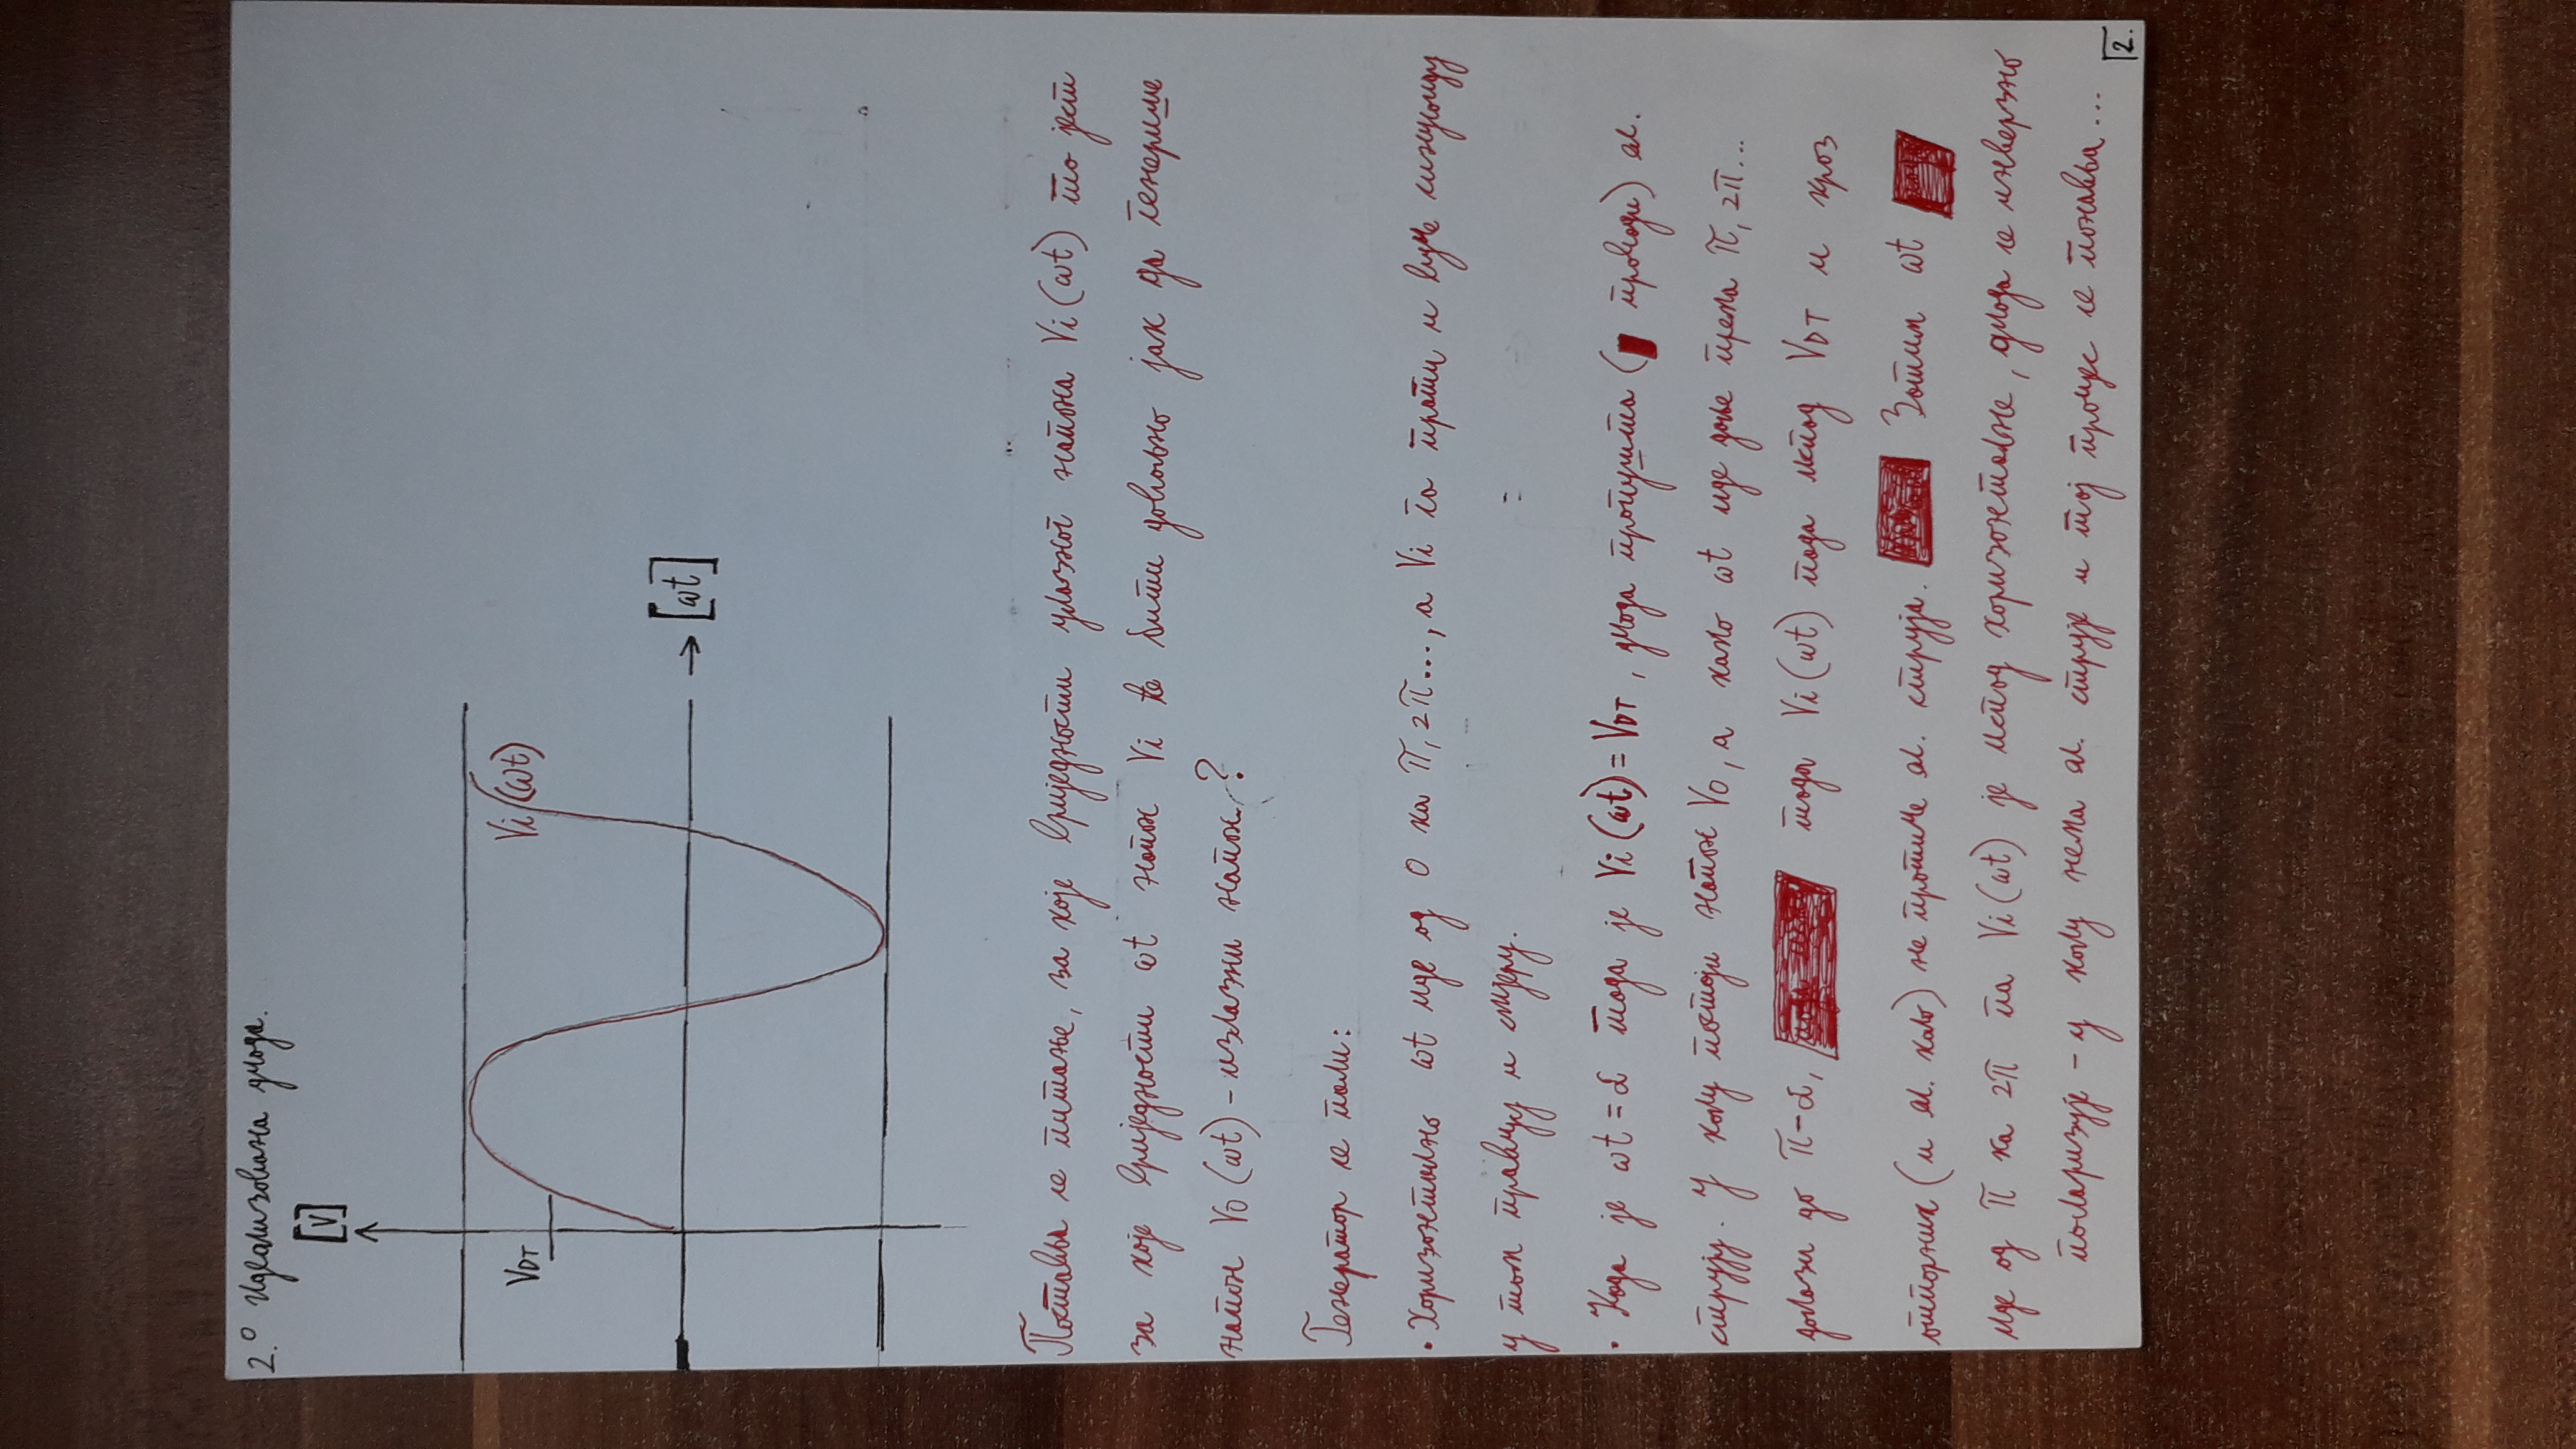 2.° Идеализована диода.
[V]
VDT
Vi(ωt)
→ [ωt]
Поставља се питање, за које вриједности улазног напона Vi(ωt) то јест
за које вриједности ωt напон Vi ће бити довољно јак да генерише
напон Vo(ωt) – излазни напон?
Генератор се пали:
• Хоризонтално ωt иде од 0 ка π, 2π..., а Vi га прати и вуче синусоиду
у том правцу и смјеру.
• Када је ωt = α тада је Vi(ωt) = VDT, диода пропушта ( проводи) ел.
струју. У колу постоји напон Vo, а како ωt иде даље према π, 2π...
долази до π-α, тада Vi(ωt) пада испод VDT и кроз
отпорник (и ел. коло) не протиче ел. струја. Затим ωt
иде од π ка 2π па Vi(ωt) је испод хоризонтале, диода се инверзно
поларизује – у колу нема ел. струје и тој процес се понавља...
2.